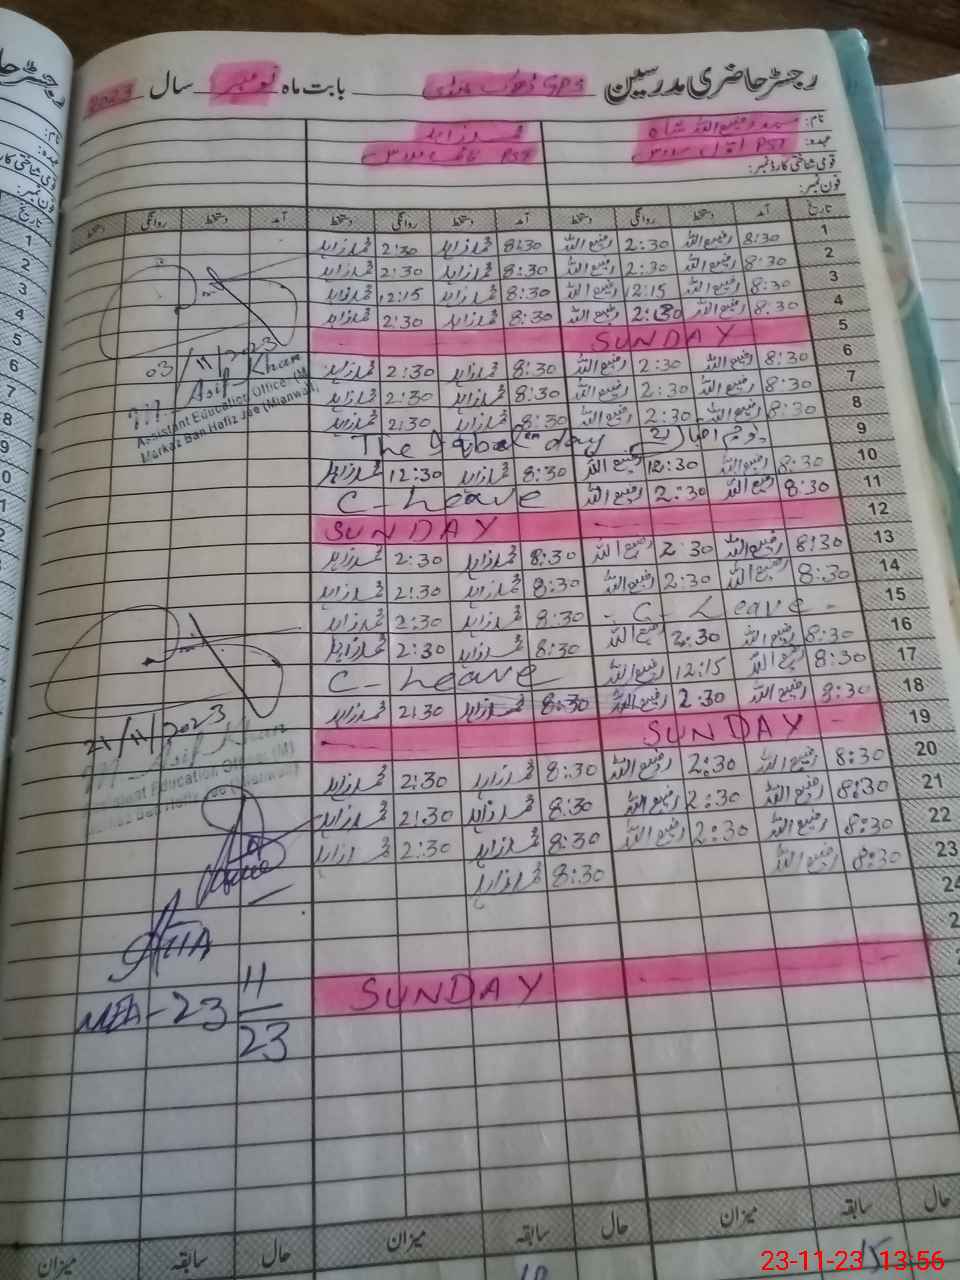 رجسٹر حاضری مدرسین GPS ڈھوک بابت ماہ نومبر سال 2023
نام: سید رفیع اللہ شاہ محمد زاہد
عہدہ: PST PST
قومی شناختی کارڈ نمبر:
فون نمبر:
تاریخ آمد دستخط روانگی دستخط آمد دستخط روانگی دستخط آمد دستخط روانگی دستخط
1 8:30 رفیع اللہ 2:30 رفیع اللہ 8:30 محمد زاہد 2:30 محمد زاہد
2 8:30 رفیع اللہ 2:30 رفیع اللہ 8:30 محمد زاہد 2:30 محمد زاہد
3 8:30 رفیع اللہ 12:15 رفیع اللہ 8:30 محمد زاہد 12:15 محمد زاہد
4 8:30 رفیع اللہ 2:30 رفیع اللہ 8:30 محمد زاہد 2:30 محمد زاہد
5 SUNDAY
6 8:30 رفیع اللہ 2:30 رفیع اللہ 8:30 محمد زاہد 2:30 محمد زاہد
7 8:30 رفیع اللہ 2:30 رفیع اللہ 8:30 محمد زاہد 2:30 محمد زاہد
8 8:30 رفیع اللہ 2:30 رفیع اللہ 8:30 محمد زاہد 2:30 محمد زاہد
9 The Iqbal day یوم اقبال
10 8:30 رفیع اللہ 12:30 رفیع اللہ 8:30 محمد زاہد 12:30 محمد زاہد
11 8:30 رفیع اللہ 2:30 رفیع اللہ C-Leave
12 SUNDAY
13 8:30 رفیع اللہ 2:30 رفیع اللہ 8:30 محمد زاہد 2:30 محمد زاہد
14 8:30 رفیع اللہ 2:30 رفیع اللہ 8:30 محمد زاہد 2:30 محمد زاہد
15 - C- Leave - 8:30 محمد زاہد 2:30 محمد زاہد
16 8:30 رفیع اللہ 2:30 رفیع اللہ 8:30 محمد زاہد 2:30 محمد زاہد
17 8:30 رفیع اللہ 12:15 رفیع اللہ C- Leave
18 8:30 رفیع اللہ 2:30 رفیع اللہ 8:30 محمد زاہد 2:30 محمد زاہد
19 SUNDAY
20 8:30 رفیع اللہ 2:30 رفیع اللہ 8:30 محمد زاہد 2:30 محمد زاہد
21 8:30 رفیع اللہ 2:30 رفیع اللہ 8:30 محمد زاہد 2:30 محمد زاہد
22 8:30 رفیع اللہ 2:30 رفیع اللہ 8:30 محمد زاہد 2:30 محمد زاہد
23 8:30 رفیع اللہ 8:30 محمد زاہد
24
SUNDAY
03/11/2023
M. Asif Khan
Assistant Education Officer (M)
Markaz Ban Hafiz Jee (Mianwali)
21/11/2023
M. Asif Khan
Assistant Education Officer (M)
Markaz Ban Hafiz Jee (Mianwali)
MEA-23 11/23
حال سابقہ میزان حال سابقہ میزان حال سابقہ میزان
15
23-11-23 13:56